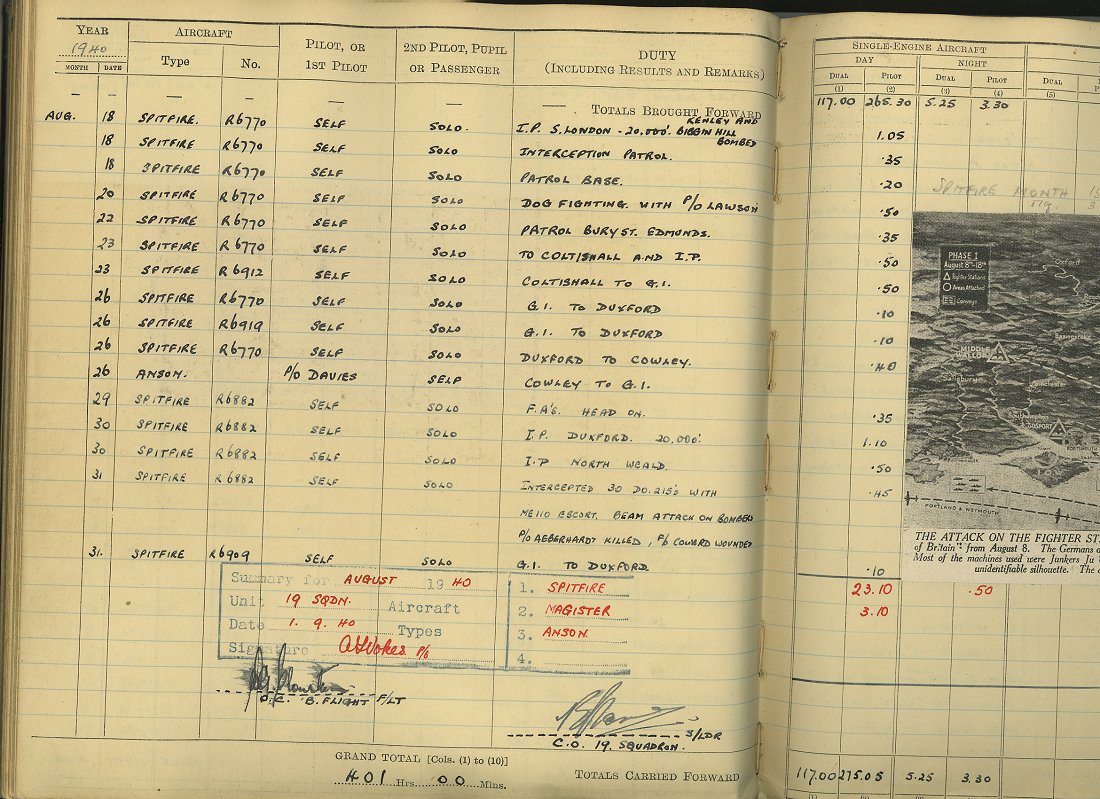 YEAR AIRCRAFT PILOT, OR 2ND PILOT, PUPIL DUTY SINGLE-ENGINE AIRCRAFT
1940 Type No. 1ST PILOT OR PASSENGER (INCLUDING RESULTS AND REMARKS) DAY NIGHT
MONTH DATE DUAL PILOT DUAL PILOT DUAL
(1) (2) (3) (4) (5)
— — — — — — — TOTALS BROUGHT FORWARD 117.00 265.30 5.25 3.30
AUG. 18 SPITFIRE. R6770 SELF SOLO. I.P. S. LONDON - 20,000'. KENLEY AND BIGGIN HILL BOMBED 1.05
18 SPITFIRE R6770 SELF SOLO INTERCEPTION PATROL. .35
18 SPITFIRE R6770 SELF SOLO PATROL BASE. .20
20 SPITFIRE R6770 SELF SOLO DOG FIGHTING WITH P/O LAWSON .50
22 SPITFIRE R6770 SELF SOLO PATROL BURY ST. EDMONDS. .35
23 SPITFIRE R6770 SELF SOLO TO COLTISHALL AND I.P. .50
23 SPITFIRE R6912 SELF SOLO COLTISHALL TO G.1. .50
26 SPITFIRE R6770 SELF SOLO G.1. TO DUXFORD .10
26 SPITFIRE R6919 SELF SOLO G.1. TO DUXFORD .10
26 SPITFIRE R6770 SELF SOLO DUXFORD TO COWLEY. .40
26 ANSON. P/O DAVIES SELF COWLEY TO G.1.
29 SPITFIRE R6882 SELF SOLO F.A's. HEAD ON. .35
30 SPITFIRE R6882 SELF SOLO I.P. DUXFORD. 20,000' 1.10
30 SPITFIRE R6882 SELF SOLO I.P NORTH WEALD. .50
31 SPITFIRE R6882 SELF SOLO INTERCEPTED 30 DO.215's WITH .45
ME110 ESCORT. BEAM ATTACK ON BOMBERS
P/O AEBERHARDT KILLED, F/O COWARD WOUNDED
31. SPITFIRE R6909 SELF SOLO G.1. TO DUXFORD. .10
Summary for AUGUST 1940 1. SPITFIRE 23.10 .50
Unit 19 SQDN. Aircraft 2. MAGISTER 3.10
Date 1.9.40 Types 3. ANSON
Signature P/O 4.
O.C. "B" FLIGHT F/LT
S/LDR
C.O. 19, SQUADRON.
GRAND TOTAL [Cols. (1) to (10)]
401 Hrs. 00 Mins. TOTALS CARRIED FORWARD 117.00 275.05 5.25 3.30
SPITFIRE MONTH
PHASE I
August 8th-18th
Fighter Stations
Areas Attacked
Convoys
Oxford
MIDDLE WALLOP
GOSPORT
PORTSMOUTH
PORTLAND & WEYMOUTH
THE ATTACK ON THE FIGHTER ST
of Britain" from August 8. The Germans
Most of the machines used were Junkers Ju
unidentifiable silhouette. The